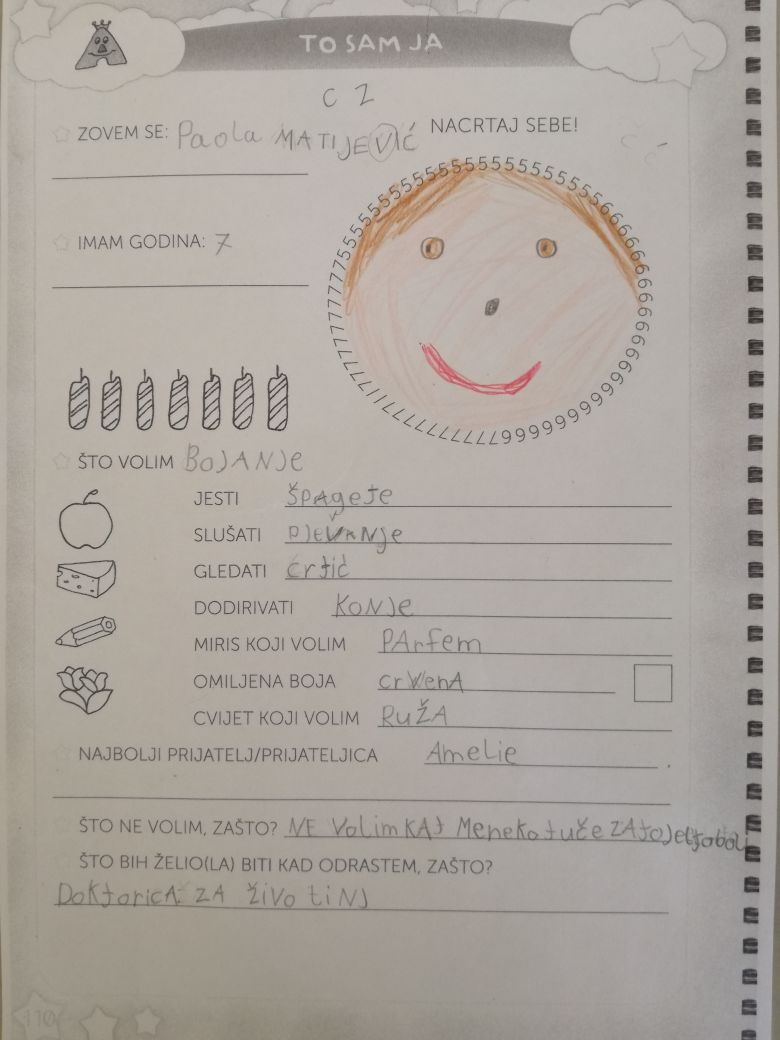 TO SAM JA
C Z
ZOVEM SE: Paola MATIJEVIĆ
NACRTAJ SEBE!
č ć
IMAM GODINA: 7
ŠTO VOLIM BOJANJE
JESTI ŠPAgeTe
SLUŠATI PJEVANje
GLEDATI crtić
DODIRIVATI KONJe
MIRIS KOJI VOLIM PArfem
OMILJENA BOJA crVenA
CVIJET KOJI VOLIM RUŽA
NAJBOLJI PRIJATELJ/PRIJATELJICA Amelie
ŠTO NE VOLIM, ZAŠTO? NE VolimKAt Meneko tuče ZAtoJe boli
ŠTO BIH ŽELIO(LA) BITI KAD ODRASTEM, ZAŠTO?
DoktoricA ZA živo tiNJ
110